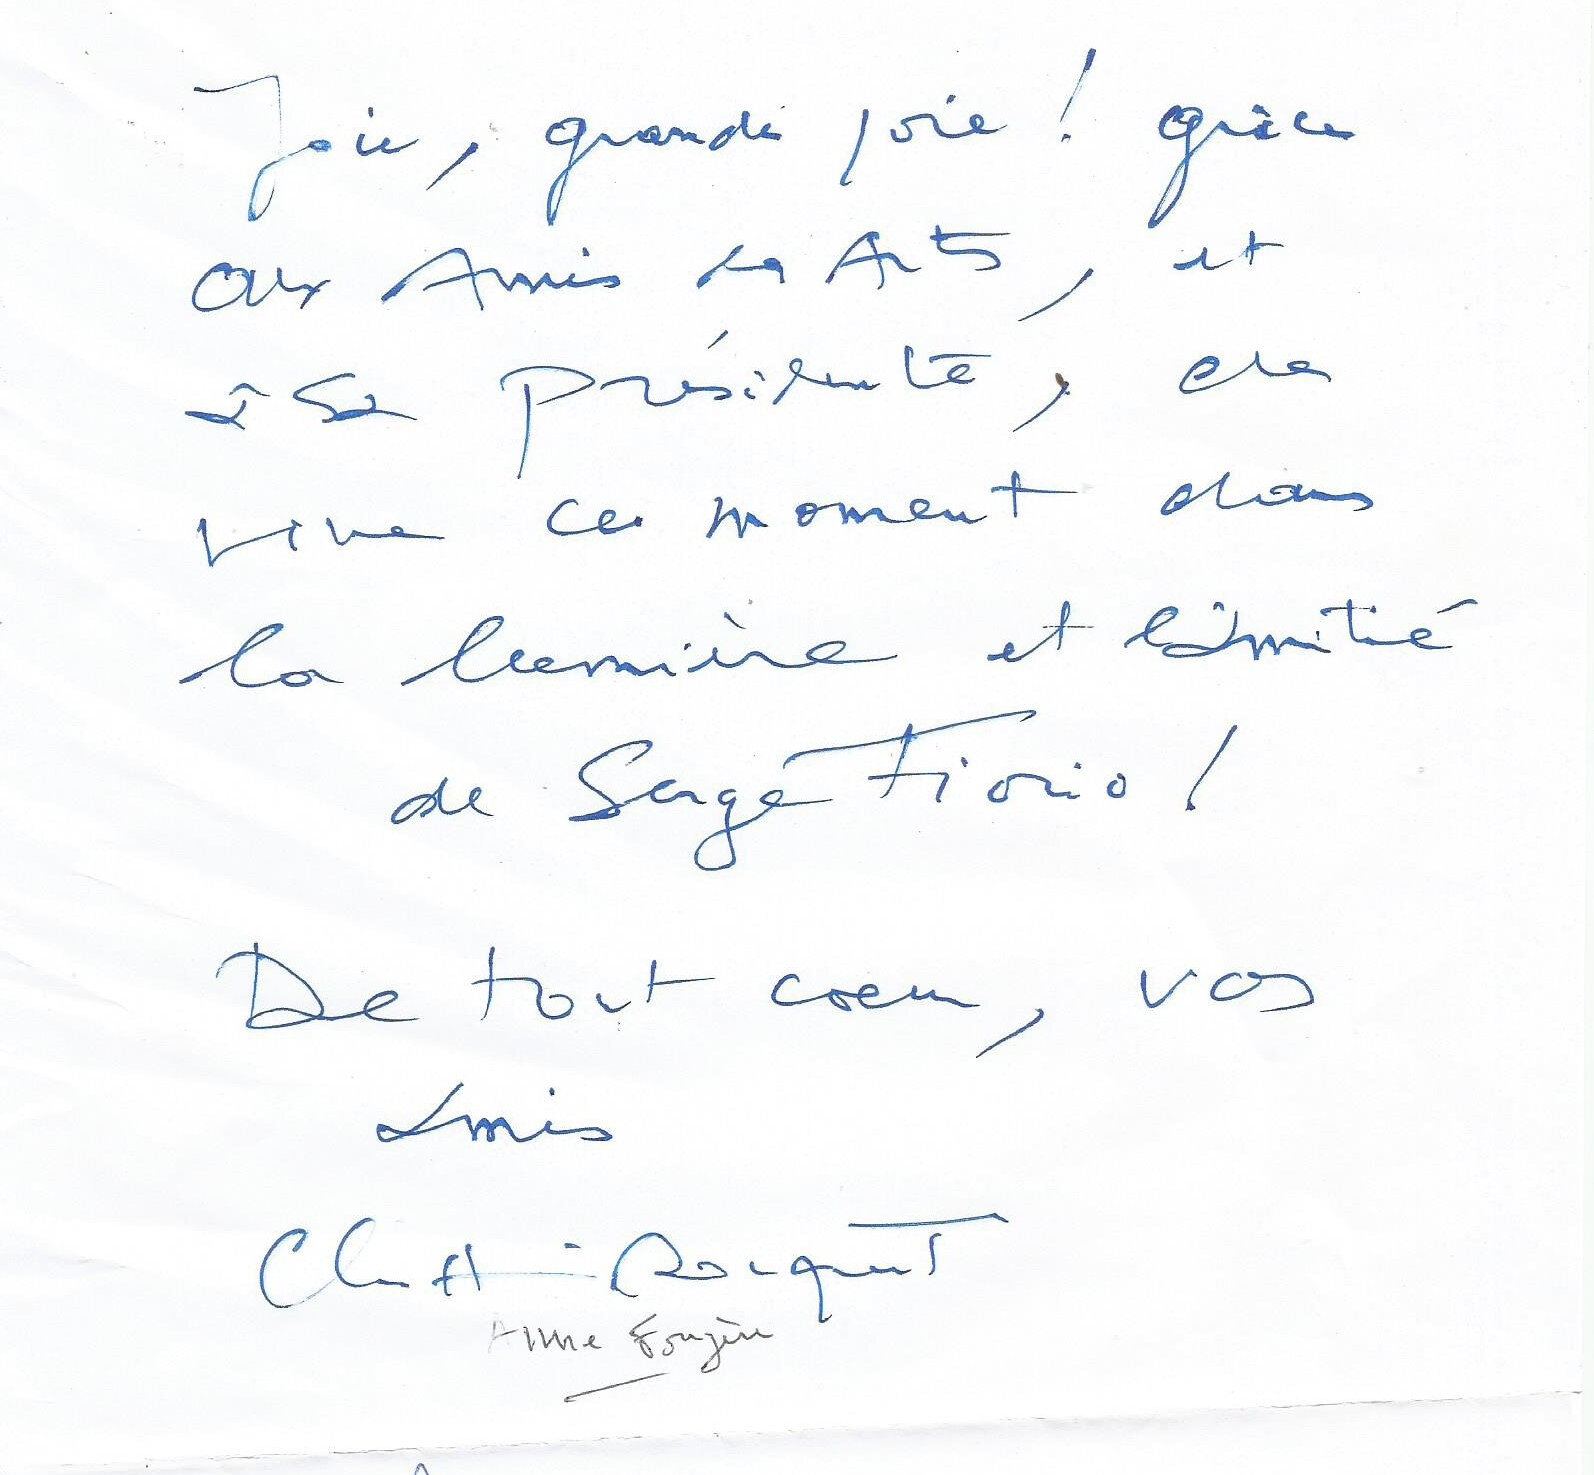 Joie, grande joie ! grâce
aux Amis des Arts, et
à sa présidente, de
vivre ce moment dans
la lumière et l'amitié
de Serge Fiorio !
De tout coeur, vos
amis
Claude-Henri Rocquet
Anne Fougère